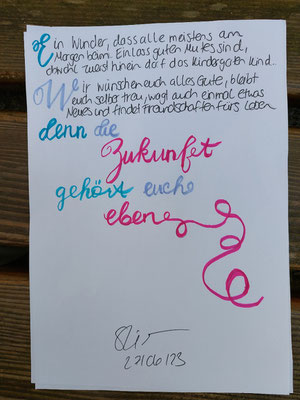 Ein Wunder, dass alle meistens am
Morgen beim Einlass guten Mutes sind,
obwohl zuerst hinein darf das Kindergarten Kind...
Wir wünschen euch alles Gute, bleibt
euch selber treu, wagt auch einmal etwas
Neues und findet Freundschaften fürs Leben
denn die
Zukunfet
gehört euch
eben
22/06/23